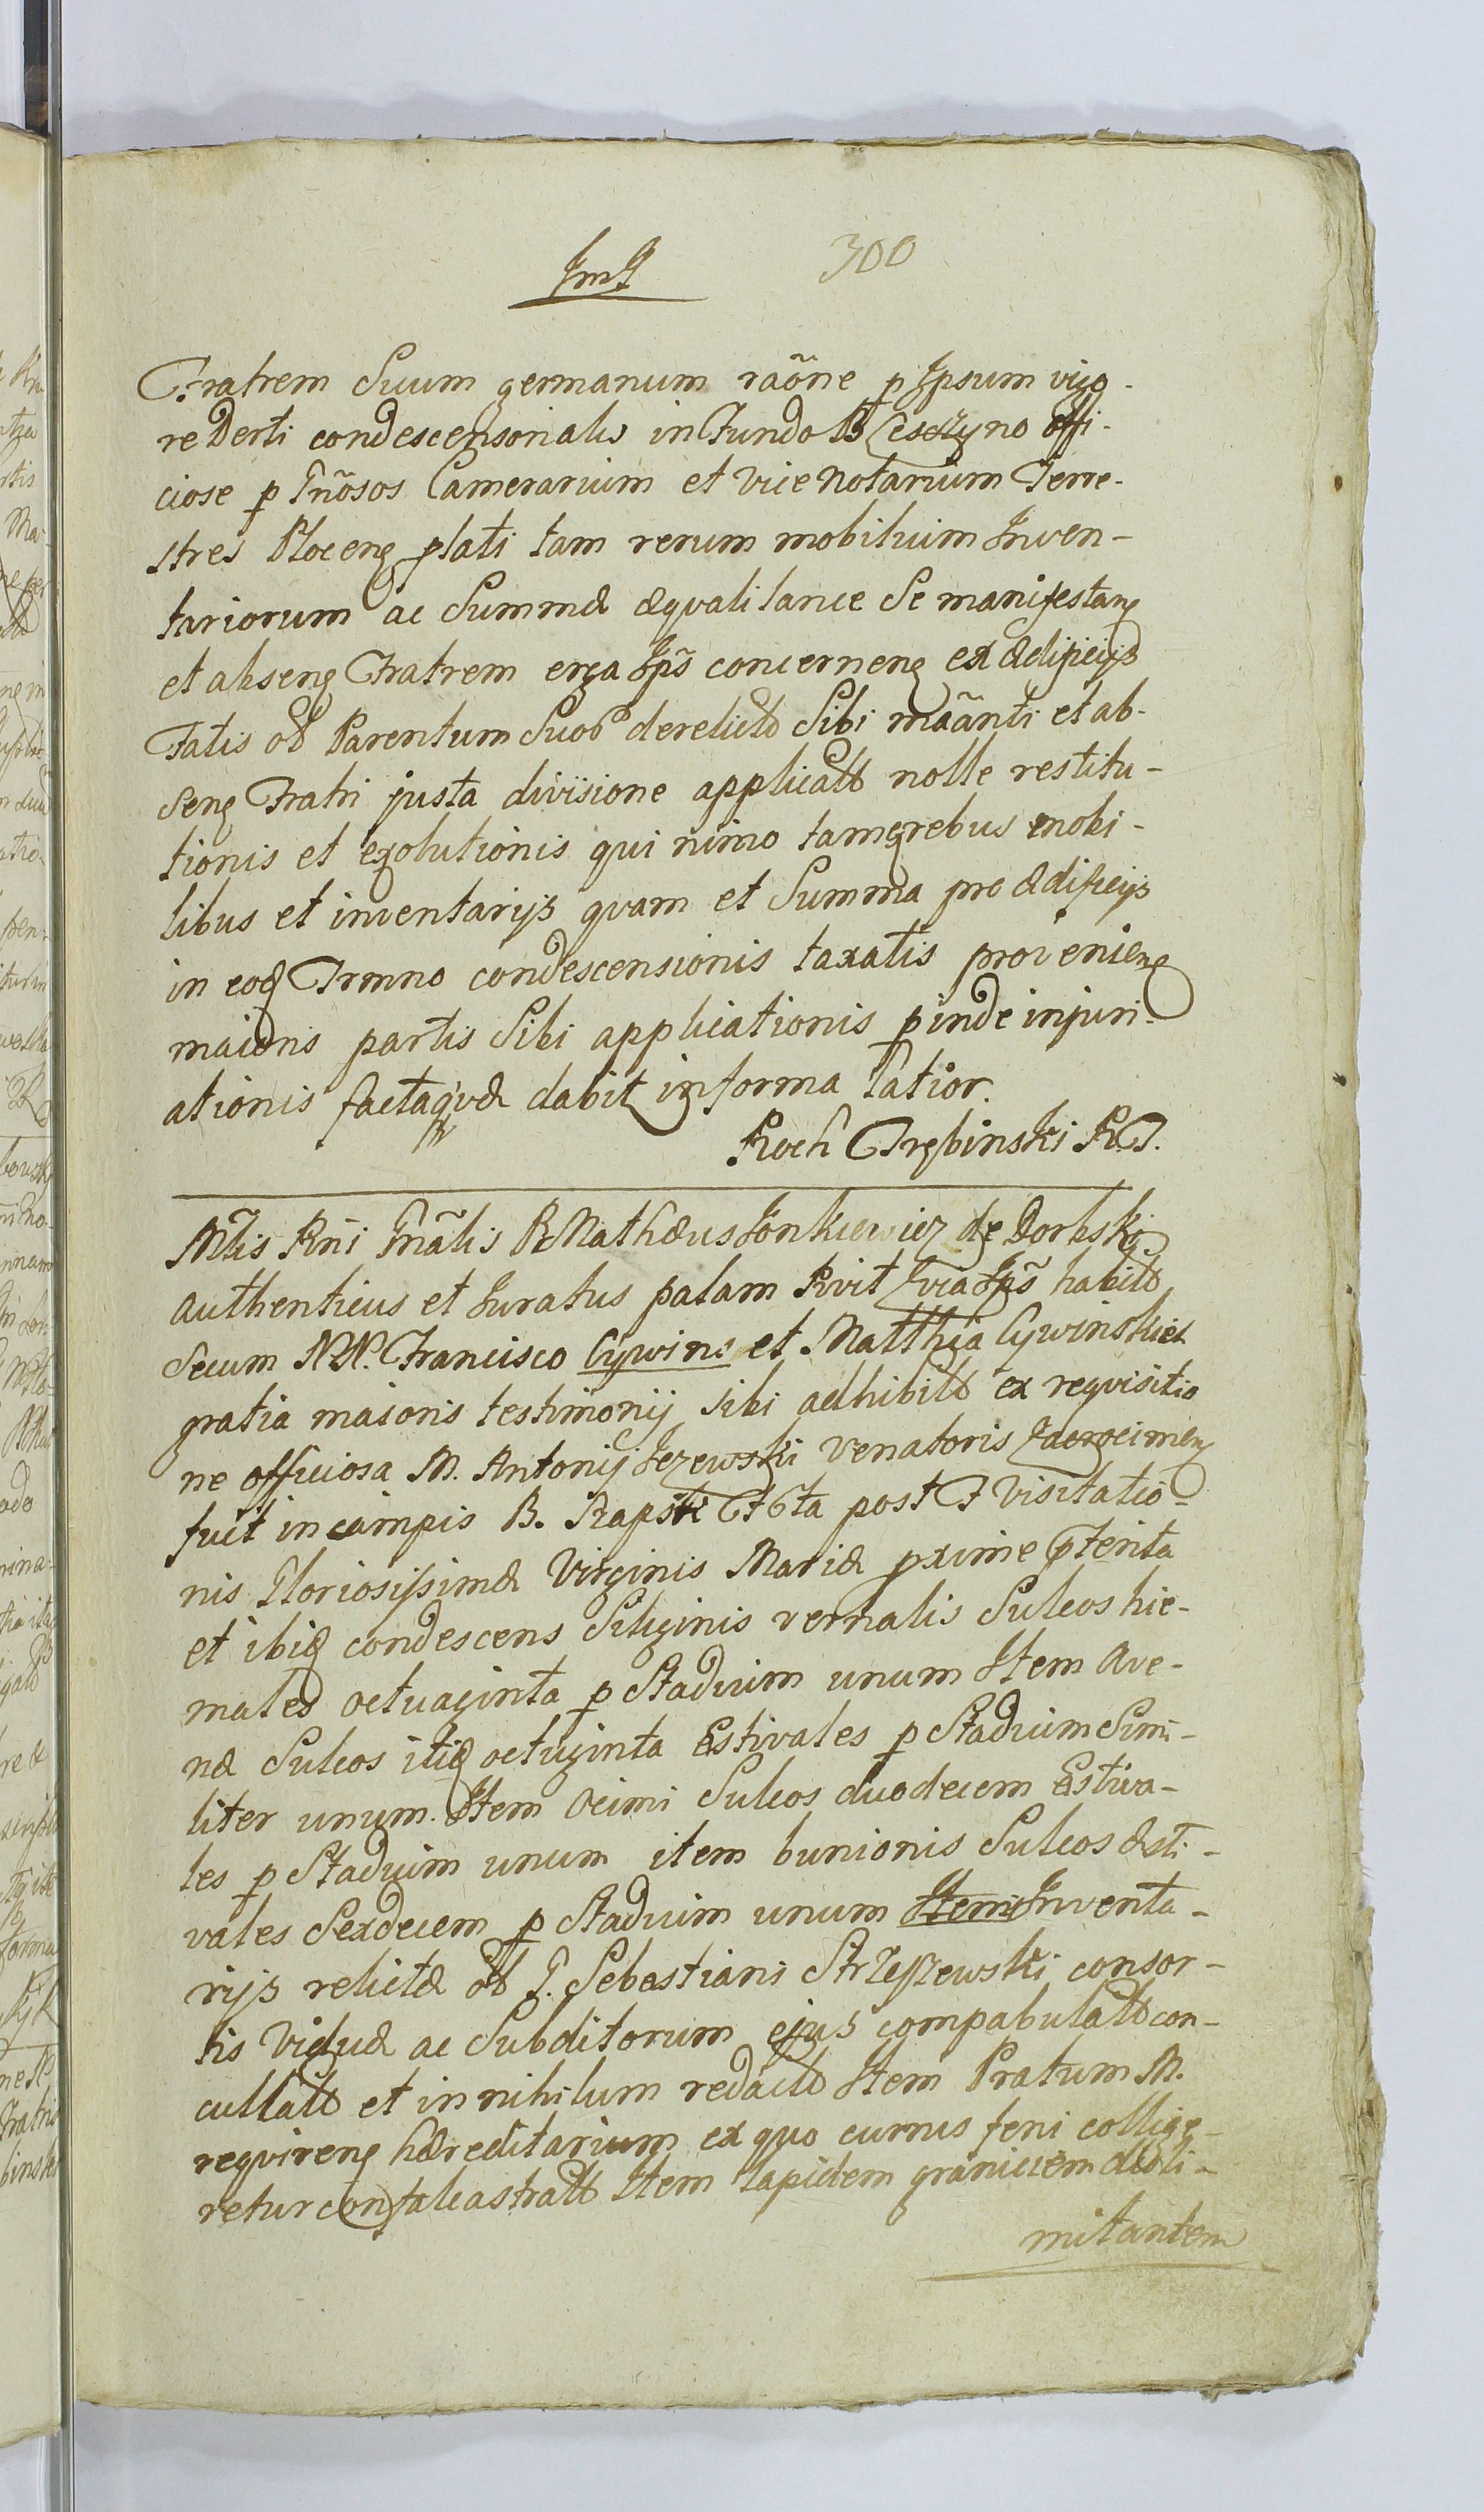 JmJ 300
Fratrem Suum germanum raõne p Ipsum vigo-
re Derti condescensorialis in Fundo B Cieszyno offi-
ciose p Gñosos Camerarium et Vice Notarium Terre-
stres Ploceng plati tam rerum mobilium Inven-
tariorum ac Summæ æqvali lance Se manifestang
et abseng Fratrem erga Ips concerneng ex ædificijs
Fatis ob Parentum Suo derelict Sibi maãnti et ab-
seng Fratri justa divisione applicatt nolle restitu-
tionis et exolutionis qui nimo tamq rebus mobi-
libus et inventarijs qvam et Summa pro ædificijs
in eoq Trmno condescensionis taxatis provenieng
maioris partis Sibi applicationis pinde injuri-
ationis factaqvæ dabit in forma Latior.
Roch Trębinski R.T.
Mtis Rñi Gnãlis R Mathæus Jonkiewicz de Dorbski
authenticus et Juratus palam Rvit Qvia Ips habitt
Secum NN. Francisco Cywins et Matthia Cywinskiet
gratia maioris testimonij sibi adhibitt ex reqvisitio
ne officiosa M. Antonij Jezewski Venatoris Zacrocimeng
fuit in campis B. Rapski F 6ta post F Visitatio-
nis Gloriosissimæ Virginis Mariæ pxime pterita
et ibiq condescens Siliginis vernalis Sulcos hie-
males octuaginta p Stadium unum Item Ave-
næ Sulcos itiq octuginta Estivales p Stadium Simi-
liter unum. Item Ocimi Sulcos duodecem Estiva-
les p Stadium unum item bunionis Sulcos æsti-
vales Sexdecem p Stadium unum Item Inventa-
rijs relictæ ob G. Sebastiani Strzeszewski consor-
tis Viduæ ac Subditorum ejus compabulatt con-
cultatt et in nihilum redactt Item Pratum M.
reqvireng hæreditarium ex quo currus feni collige-
retur confalcastratt Item Lapidem graniciem disli-
mitantem